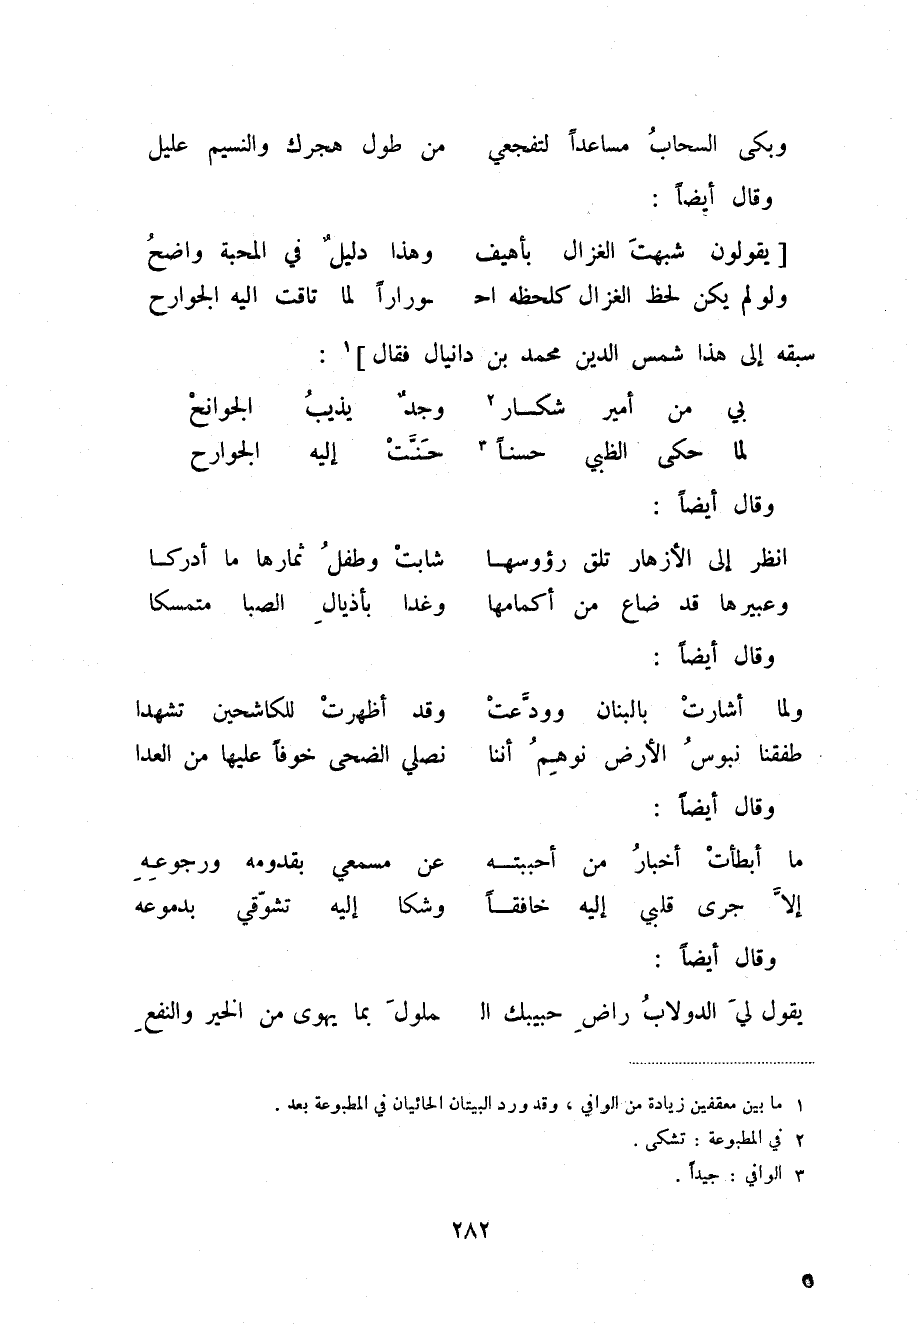 وبكى السحابُ مساعداً لتفجعي من طول هجرك والنسيم عليل
وقال أيضاً :
[ يقولون شبهتَ الغزال بأهيف وهذا دليلٌ في المحبة واضحُ
ولو لم يكن لحظ الغزال كلحظه احـ ـوراراً لما تاقت اليه الجوارح
سبقه إلى هذا شمس الدين محمد بن دانيال فقال ]١ :
بي من أمير شكار٢ وجدٌ يذيبُ الجوانحْ
لما حكى الظبي حسناً٣ حَنَّتْ إليه الجوارح
وقال أيضاً :
انظر إلى الأزهار تلق رؤوسها شابتْ وطفلُ ثمارها ما أدركا
وعبيرها قد ضاع من أكمامها وغدا بأذيالِ الصبا متمسكا
وقال أيضاً :
ولما أشارتْ بالبنان وودَّعتْ وقد أظهرتْ للكاشحين تشهدا
طفقنا نبوسُ الأرض نوهِمُ أننا نصلي الضحى خوفاً عليها من العدا
وقال أيضاً :
ما أبطأتْ أخبارُ من أحببته عن مسمعي بقدومه ورجوعِهِ
إلاَّ جرى قلبي إليه خافقاً وشكا إليه تشوّقي بدموعه
وقال أيضاً :
يقول ليَ الدولابُ راضِ حبيبك الـ ـملولَ بما يهوى من الخير والنفعِ
١ ما بين معقفين زيادة من الوافي ، وقد ورد البيتان الحائيان في المطبوعة بعد .
٢ في المطبوعة : تشكى .
٣ الوافي : جيداً .
٢٨٢
٥